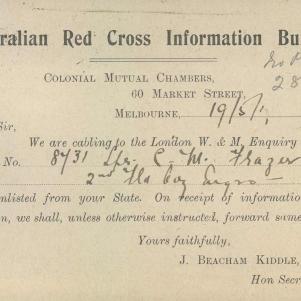 ralian Red Cross Information Bu
COLONIAL MUTUAL CHAMBERS,
28
60 MARKET STREET,
MELBOURNE, 19/5/1
Sir,
We are cabling to the London W. & M. Enquiry
No. 8731 Spr. C. M. Frazer
2nd Fld Coy Engrs
nlisted from your State. On receipt of informatio
n, we shall, unless otherwise instructed, forward same
Yours faithfully,
J. BEACHAM KIDDLE,
Hon Secre